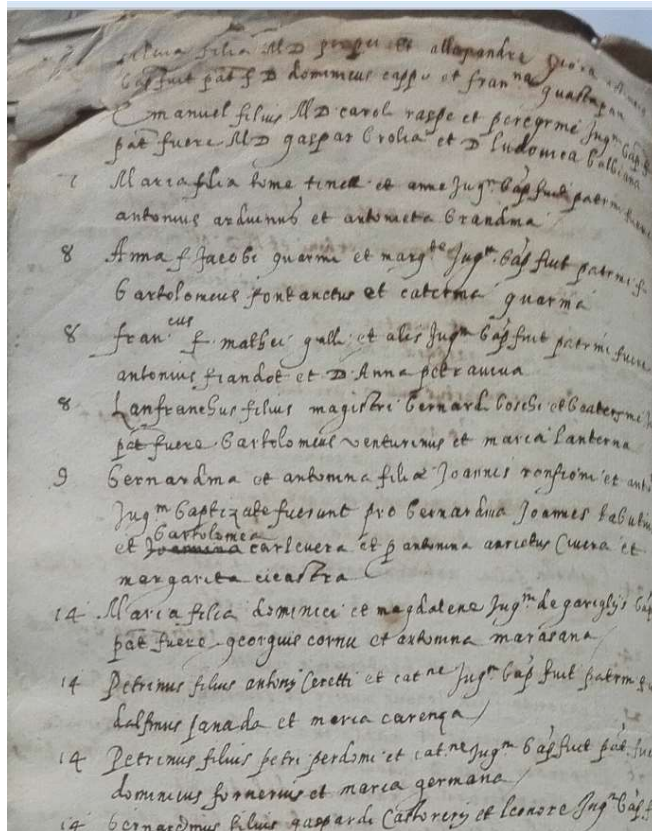 filia M D et
bap fuit pat f D dominicus cappo et fran^na
Emanuel filius M D carol raspe et peregrine Jug^m bap f
pat fuere M D gaspar brolia et D ludovica balbiana
7 Maria filia tome tinell et anne Jug^m bap fuit patrini fuere
antonius arduinus et antonieta brandina
8 Anna f Jacobi guarini et marg^te Jug^m bap fuit patrini f
bartolomeus fontanetus et caterina guarina
8 fran^cus f. mathei galli et Jug^m bap fuit patrini fuere
antonius fiandot et D Anna petraviva
8 Lanfranchus filius magistri bernard boschi et
pat fuere bartolomeus venturinus et maria lanterna
9 bernardina et antonina filiæ Joannis ronsioni et
Jug^m baptizate fuerunt pro bernardina Joannes
bartolomea
et carlevera et p antonina anrietus Civera et
margarita cicastra
14 Maria filia dominici et magdalene Jug^m de gariglijs bap
pat fuere georgius cornu et antonina marasana
14 Petrinus filius antonij Ceretti et cat^ne Jug^m bap fuit patrin
dalfinus sanada et maria carenza
14 Petrinus filius petri perdomi et cat^ne Jug^m bap fuit pat fue
dominicus fornerius et maria germana
14 bernardinus filius gaspardi Castorerij et leonore Jug^m bap f